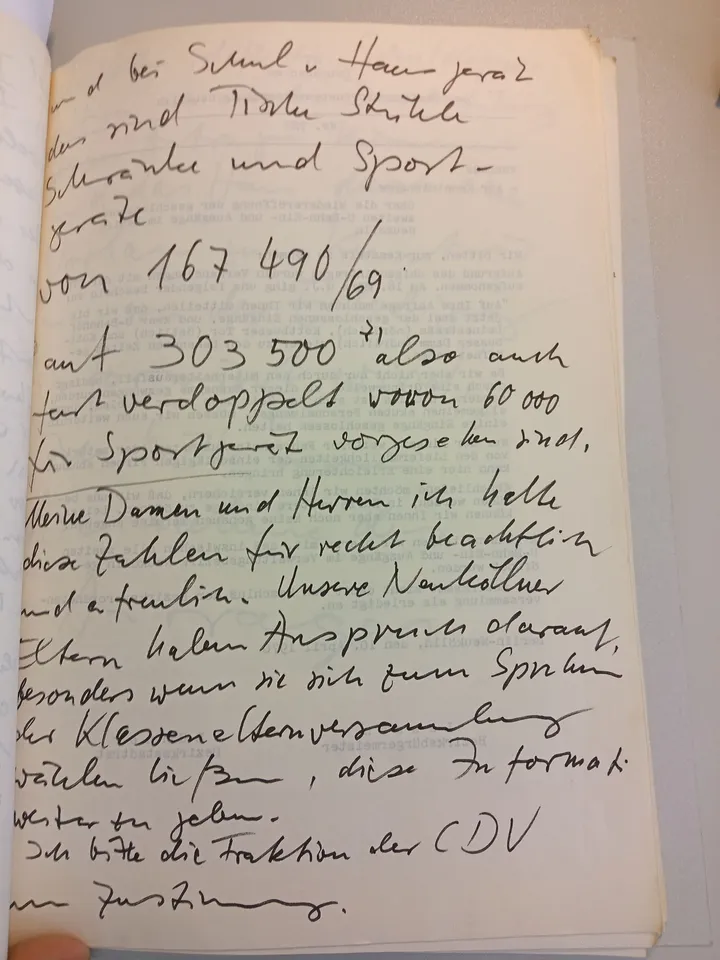 und bei Schul u Hausgerät
das sind Tische Stühle
Schränke und Sport-
geräte
von 167 490/69
auf 303 500 71 also auch
fast verdoppelt wovon 60 000
für Sportgerät vorgesehen sind.
Meine Damen und Herren ich halte
diese Zahlen für recht beachtlich
und erfreulich. Unsere Neuköllner
Eltern haben Anspruch darauf,
besonders wenn sie sich zum Sprechen
der Klassenelternversammlung
wählen ließen, diese Informat.
weiter zu geben.
Ich bitte die Fraktion der CDU
um Zustimmung.